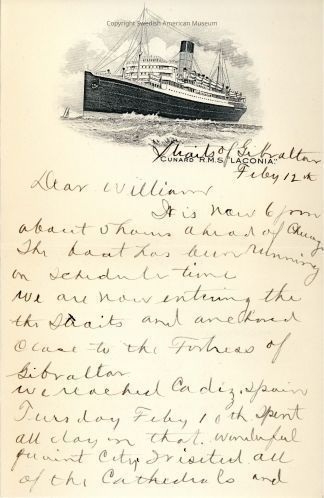 Copyright Swedish American Museum
Straits of Gibraltar
CUNARD R.M.S. "LACONIA"
Feby 12th
Dear William
It is now 6 pm
about 7 hours ahead of Chicago
The boat has been running
on schedule time
We are now entering the
the Straits and anchored
close to the Fortress of
Gibraltar
We reached Cadiz, Spain
Tuesday Feby 10th spent
all day in that wonderful
quaint City. I visited all
of the Cathedrals and